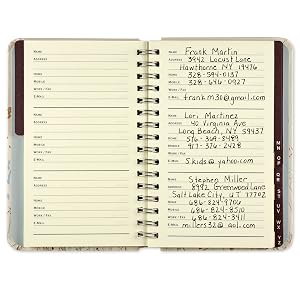 NAME
ADDRESS
HOME
MOBILE
WORK / FAX
E-MAIL
NAME
ADDRESS
HOME
MOBILE
WORK / FAX
E-MAIL
NAME
ADDRESS
HOME
MOBILE
WORK / FAX
E-MAIL
NAME Frank Martin
ADDRESS 3942 Locust Lane
Hawthorne NY 19476
HOME 328-594-0137
MOBILE 328-646-0927
WORK / FAX
E-MAIL frankm30@gmail.com
NAME Lori Martinez
ADDRESS 40 Virginia Ave
Long Beach, NY 59437
HOME 516-369-8489
MOBILE 917-376-2428
WORK / FAX
E-MAIL 5.kids@yahoo.com
NAME Stephen Miller
ADDRESS 8992 Greenwood Lane
Salt Lake City, UT 17702
HOME 686-824-9706
MOBILE 686-824-8510
WORK / FAX 686-824-3411
E-MAIL millers32@aol.com
MN
OP
QR
ST
UV
WX
YZ